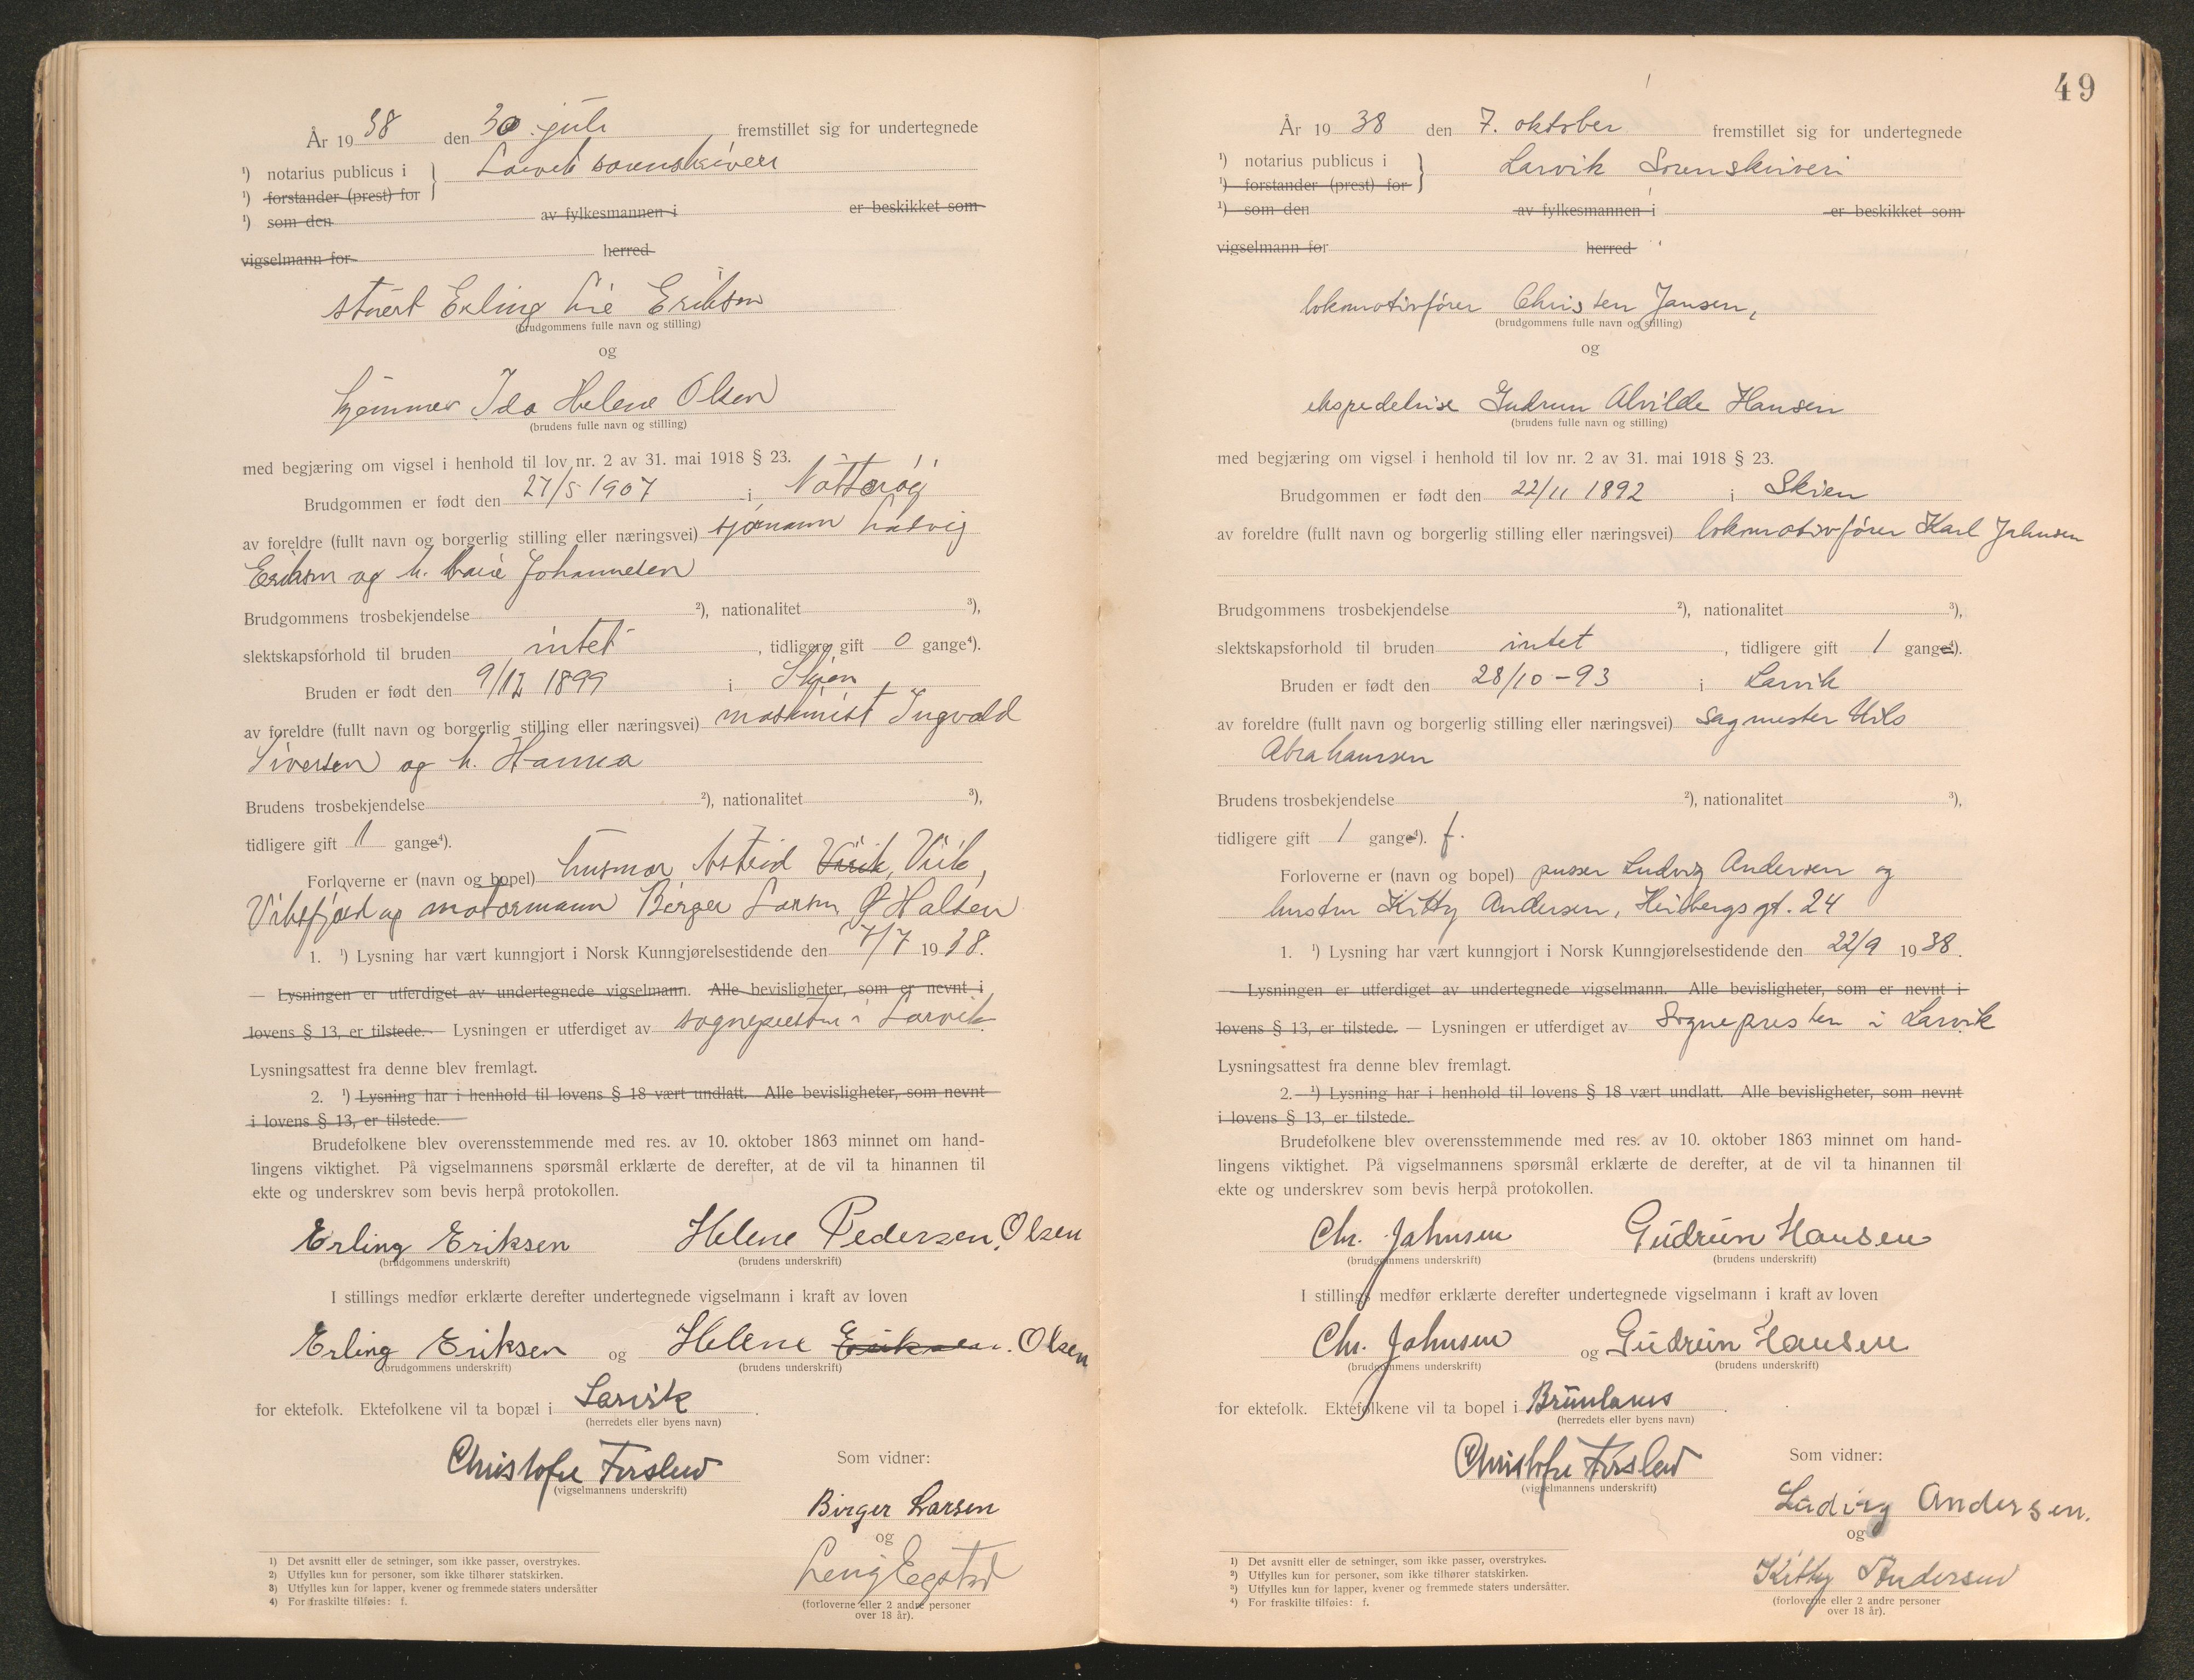 År 19 38 den 30 juli fremstillet sig for undertegnede
¹) notarius publicus i } Larvik sorenskriveri
¹) forstander (prest) for
¹) som den av fylkesmannen i er beskikket som
vigselmann for herred
stuert Erling Lie Eriksen
(brudgommens fulle navn og stilling)
og
hjemmev. Ida Helene Olsen
(brudens fulle navn og stilling)
med begjæring om vigsel i henhold til lov nr. 2 av 31. mai 1918 § 23.
Brudgommen er født den 27/5 1907 i Nøtterøy
av foreldre (fullt navn og borgerlig stilling eller næringsvei) sjømann Ludvig
Eriksen og h. Marie Johannesen
Brudgommens trosbekjendelse ²), nationalitet ³),
slektskapsforhold til bruden intet, tidligere gift 0 gange⁴).
Bruden er født den 9/12 1899 i Skien
av foreldre (fullt navn og borgerlig stilling eller næringsvei) maskinist Ingvald
Siversen og h. Hanna
Brudens trosbekjendelse ²), nationalitet ³),
tidligere gift 1 gange⁴).
Forloverne er (navn og bopel) husmor Astrid Virik, Viik,
og motormann Birger Larsen Ø Halsen
1. ¹) Lysning har vært kunngjort i Norsk Kunngjørelsestidende den 7/7 1938.
— Lysningen er utferdiget av undertegnede vigselmann. Alle bevisligheter, som er nevnt i
lovens § 13, er tilstede. — Lysningen er utferdiget av sognepresten i Larvik
Lysningsattest fra denne blev fremlagt.
2. ¹) Lysning har i henhold til lovens § 18 vært undlatt. Alle bevisligheter, som nevnt
i lovens § 13, er tilstede.
Brudefolkene blev overensstemmende med res. av 10. oktober 1863 minnet om hand-
lingens viktighet. På vigselmannens spørsmål erklærte de derefter, at de vil ta hinannen til
ekte og underskrev som bevis herpå protokollen.
Erling Eriksen Helene Pedersen, Olsen
(brudgommens underskrift) (brudens underskrift)
I stillings medfør erklærte derefter undertegnede vigselmann i kraft av loven
Erling Eriksen og Helene Eriksen. Olsen
(brudgommens underskrift) (brudens underskrift)
for ektefolk. Ektefolkene vil ta bopæl i Larvik.
(herredets eller byens navn)
Christofer Firslew
(vigselmannens underskrift)
Som vidner:
Birger Larsen
og
(forloverne eller 2 andre personer
over 18 år).
1) Det avsnitt eller de setninger, som ikke passer, overstrykes.
2) Utfylles kun for personer, som ikke tilhører statskirken.
3) Utfylles kun for lapper, kvener og fremmede staters undersåtter
4) For fraskilte tilføies: f.
49
År 19 38 den 7. oktober fremstillet sig for undertegnede
¹) notarius publicus i } Larvik Sorenskriveri
¹) forstander (prest) for
¹) som den av fylkesmannen i er beskikket som
vigselmann for herred
lokomotivfører Christen Jansen,
(brudgommens fulle navn og stilling)
og
ekspeditrise Gudrun Alvilde Hansen
(brudens fulle navn og stilling)
med begjæring om vigsel i henhold til lov nr. 2 av 31. mai 1918 § 23.
Brudgommen er født den 22/11 1892 i Skien
av foreldre (fullt navn og borgerlig stilling eller næringsvei) lokomotivfører Karl Jahnsen
Brudgommens trosbekjendelse ²), nationalitet ³),
slektskapsforhold til bruden intet, tidligere gift 1 gange⁴).
Bruden er født den 28/10-93 i Larvik
av foreldre (fullt navn og borgerlig stilling eller næringsvei) sagmester Nils
Abrahamsen
Brudens trosbekjendelse ²), nationalitet ³),
tidligere gift 1 gange⁴). f.
Forloverne er (navn og bopel) pusser Ludvig Andersen og
hustru Kitty Andersen, Heibergsgt. 24
1. ¹) Lysning har vært kunngjort i Norsk Kunngjørelsestidende den 22/9 1938.
— Lysningen er utferdiget av undertegnede vigselmann. Alle bevisligheter, som er nevnt i
lovens § 13, er tilstede. — Lysningen er utferdiget av Sognepresten i Larvik
Lysningsattest fra denne blev fremlagt.
2. ¹) Lysning har i henhold til lovens § 18 vært undlatt. Alle bevisligheter, som nevnt
i lovens § 13, er tilstede.
Brudefolkene blev overensstemmende med res. av 10. oktober 1863 minnet om hand-
lingens viktighet. På vigselmannens spørsmål erklærte de derefter, at de vil ta hinannen til
ekte og underskrev som bevis herpå protokollen.
Chr. Jahnsen Gudrun Hansen
(brudgommens underskrift) (brudens underskrift)
I stillings medfør erklærte derefter undertegnede vigselmann i kraft av loven
Chr. Jahnsen og Gudrun Hansen
(brudgommens underskrift) (brudens underskrift)
for ektefolk. Ektefolkene vil ta bopel i Brunlanes.
(herredets eller byens navn)
Christofer Firslew
(vigselmannens underskrift)
Som vidner:
Ludvig Andersen.
og
Kitty Andersen
(forloverne eller 2 andre personer
over 18 år).
1) Det avsnitt eller de setninger, som ikke passer, overstrykes.
2) Utfylles kun for personer, som ikke tilhører statskirken.
3) Utfylles kun for lapper, kvener og fremmede staters undersåtter.
4) For fraskilte tilføies: f.